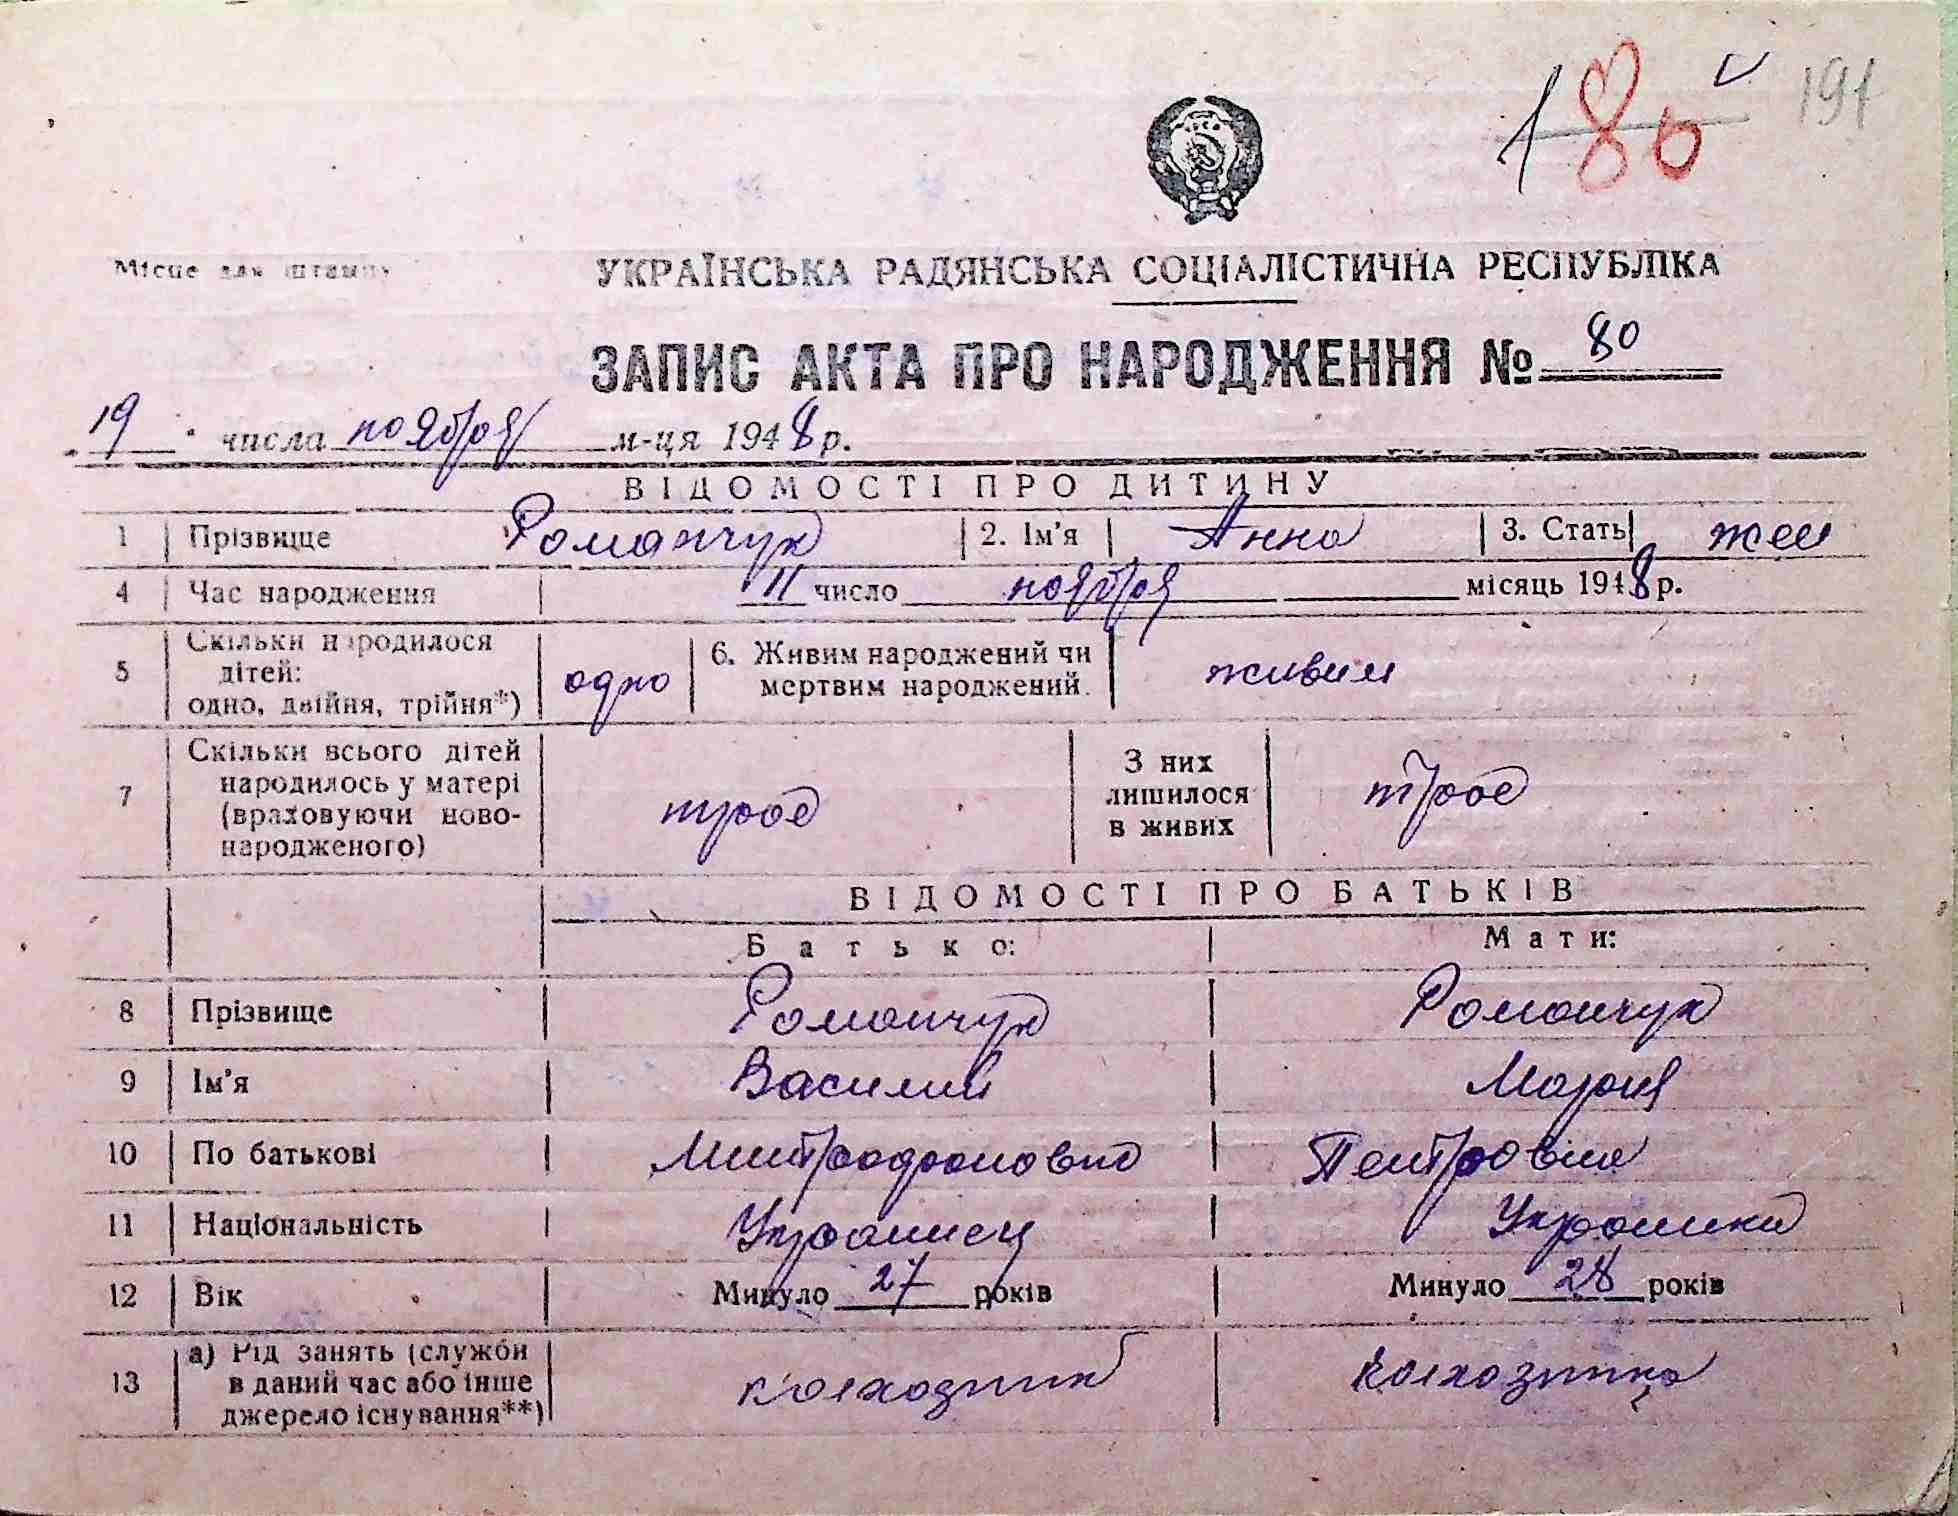 180 v 191
Місце для штампу
УКРАЇНСЬКА РАДЯНСЬКА СОЦІАЛІСТИЧНА РЕСПУБЛІКА
ЗАПИС АКТА ПРО НАРОДЖЕННЯ № 80
19 числа ноября м-ця 1948 р.
ВІДОМОСТІ ПРО ДИТИНУ
1 Прізвище Романчук 2. Ім'я Анна 3. Стать жен
4 Час народження 11 число ноября місяць 1948 р.
5 Скільки народилося дітей: одно, двійня, трійня*) одно 6. Живим народжений чи мертвим народжений. живим
7 Скільки всього дітей народилось у матері (враховуючи новонародженого) трое З них лишилося в живих трое
ВІДОМОСТІ ПРО БАТЬКІВ
Батько: Мати:
8 Прізвище Романчук Романчук
9 Ім'я Василий Мария
10 По батькові Митрофановича Петровна
11 Національність Украинец Украинка
12 Вік Минуло 27 років Минуло 28 років
13 а) Рід занять (служби в даний час або інше джерело існування**) колхозник колхозница